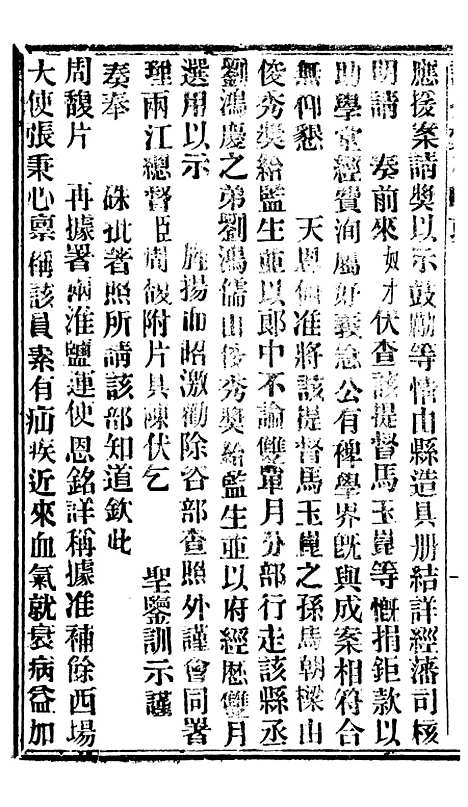 應援案請獎以示鼓勵等情由縣造具册結詳經藩司核
明請　奏前來奴才伏查該提督馬玉崑等慨捐鉅款以
助學堂經費洵屬好義急公有裨學界旣與成案相符合
無仰懇　天恩俯准將該提督馬玉崑之孫馬朝樑由
俊秀獎給監生並以郎中不論雙單月分部行走該縣丞
劉鴻慶之弟劉鴻儒由俊秀獎給監生並以府經歷雙月
選用以示　旌揚而昭激勸除咨部查照外謹會同署
理兩江總督臣周馥附片具陳伏乞　聖鑒訓示謹
奏奉　硃批着照所請該部知道欽此
周馥片　再據署兩淮鹽運使恩銘詳稱據准補餘西場
大使張秉心禀稱該員素有疝疾近來血氣就衰病益加